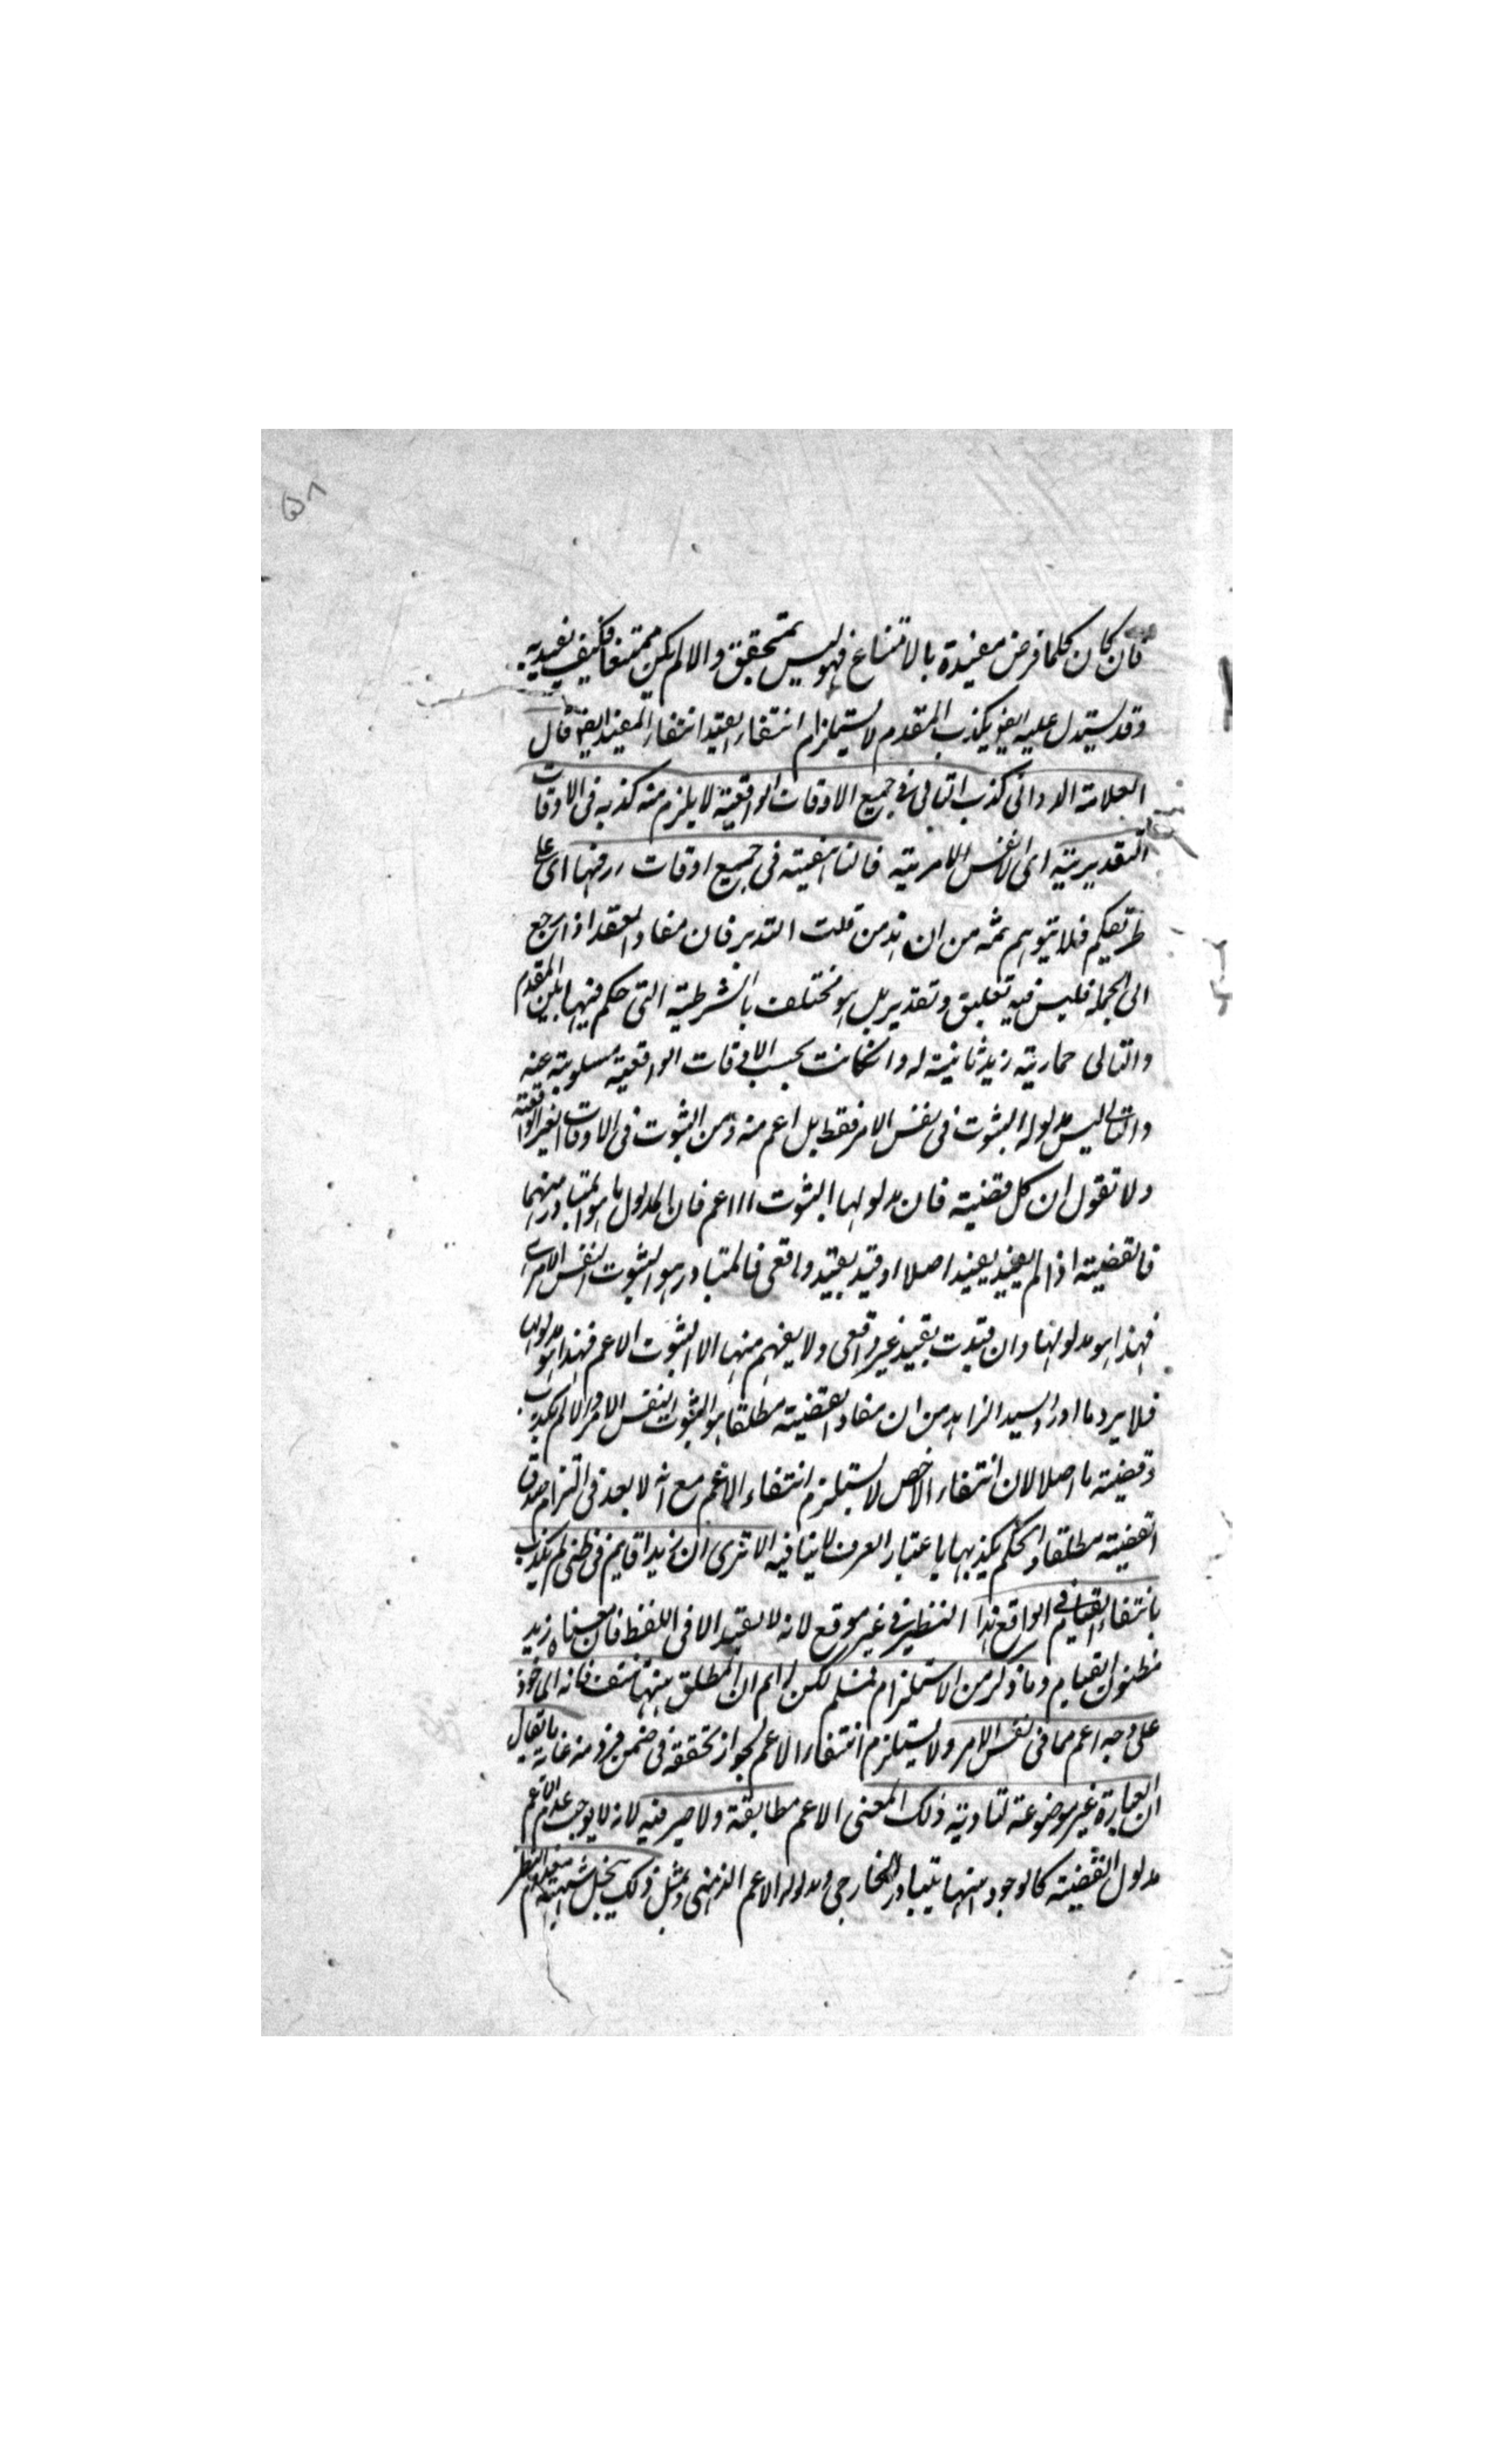 ٥٨
فان كان كلما فرض مقيدة بالامتناع فهو ليس بمتحقق والا لم يكن ممتنعا فكيف يقيد به
وقد يستدل عليه ايضا بكذب المقدم لاستلزام انتفاء القيد انتفاء المقيد ايضا قال
العلامة الدوانى كذب التالى فى جميع الاوقات الواقعية لا يلزم منه كذبه فى الاوقات
التقديرية اى النفس الامرية فالناهقية فى جميع اوقات اى على
طريقكم فلا يتوهم ثمه من ان من قلت التدبر فان مفاد العقد اذا رجع
الى الجملة فليس فيه تعليق وتقدير بل هو مختلف بالشرطية التى حكم فيها بين المقدم
والتالى حمارية زيد ثابتة له وان كانت بحسب الاوقات الواقعية مسلوبة عنه
والتالى ليس مدلوله الثبوت فى نفس الامر فقط بل اعم منه ومن الثبوت فى الاوقات الغير الواقعية
ولا تقول ان كل قضية فان مدلولها الثبوت الاعم فان المدلول ما هو المتبادر منها
فالقضية اذا لم يقيد بقيد اصلا او قيد بقيد واقعى فالمتبادر هو الثبوت النفس الامرى
فهذا هو مدلولها وان قيدت بقيد غير واقعى ولا يفهم منها الا الثبوت الاعم فهذا هو مدلولها
فلا يرد ما اورد السيد الزاهد من ان مفاد القضية مطلقا هو الثبوت النفس الامرى والا لم يكذب
قضية ما اصلا لان انتفاء الاخص لا يستلزم انتفاء الاعم مع انه لا بعد فى التزام صدق
القضية مطلقا والحكم بكذبها باعتبار العرف لا ينافيه الا ترى ان زيدا قايم فى ظنى لم يكذب
بانتفاء القيام فى الواقع هذا التنظير فى غير موقع لانه لا يقيد الا فى اللفظ فان معناه زيد
مظنون القيام وما ذكر من الاستلزام فمسلم لكن لانم ان المطلق منها منتف فانه الماخوذ
على وجه اعم مما فى نفس الامر ولا يستلزم انتفاء الاعم لجواز تحققه فى ضمن فرد منه غاية ما يقال
ان العبارة غير موضوعة لتادية ذلك المعنى الاعم مطابقة ولا ضير فيه لانه لا يوجب عدم الاعم
مدلول القضية كالوجود منها يتبادر الخارجى ومدلوله الاعم الذهنى وبمثل ذلك ينحل شبهة